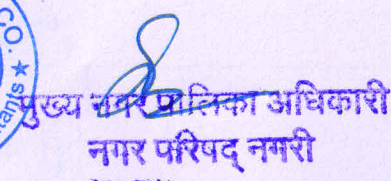 CO.
मुख्य नगर पालिका अधिकारी
नगर परिषद् नगरी